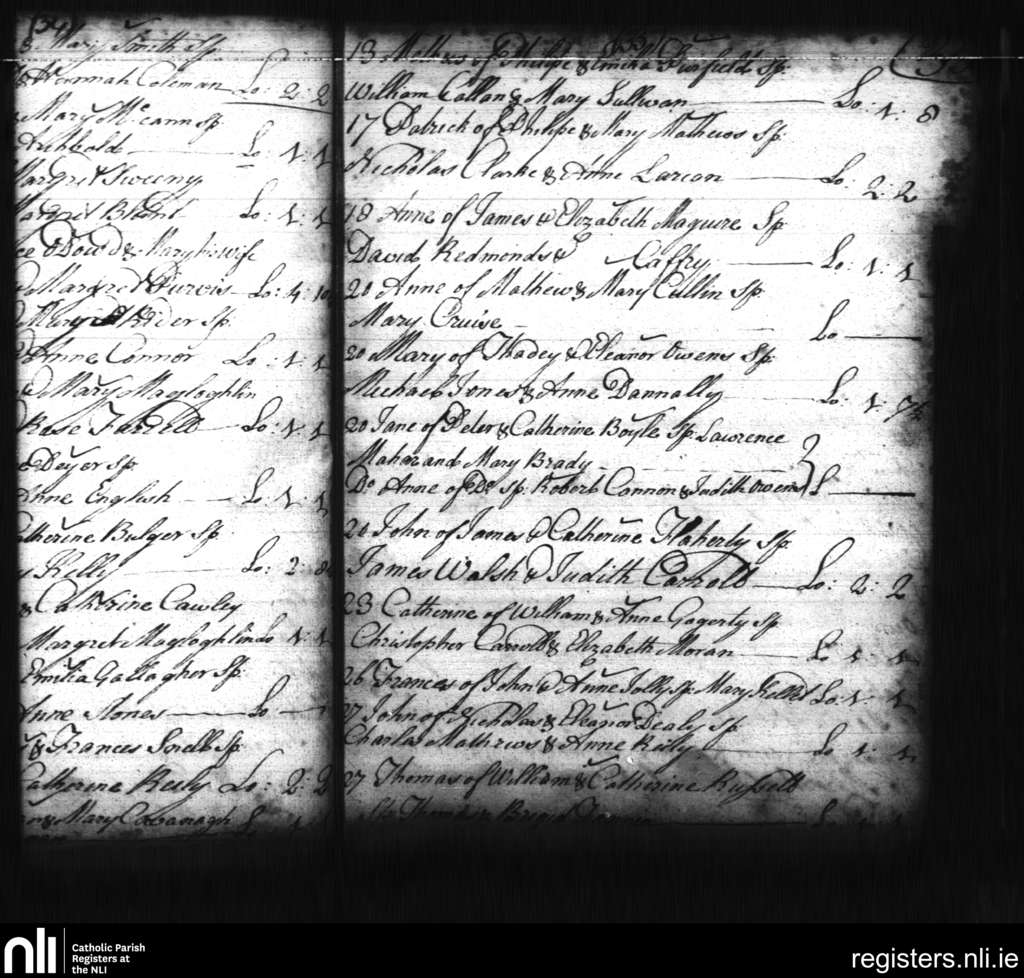 Mary Smith Sp
Hannah Coleman Lo: 2: 2
Mary McCann sp
Archbold Lo: 1: 1
Margret Sweeny
Margret Blunt Lo: 1: 1
O Dowd & Mary his wife
Margret Purvis Lo: 4:
Rider Sp.
Anne Connor Lo: 1: 1
& Mary Magloghlin
Rose Farrell Lo: 1: 1
Dwyer sp.
Anne English Lo: 1: 1
Catherine Bulger Sp
Kelly Lo: 2: 8
& Cathrine Cawley
Margret Magloghlin Lo 1: 1
Emilia Gallagher Sp
Anne Jones Lo
& Frances Snell Sp
Catherine Reily Lo: 2: 2
& Mary Cavanagh
13 Mathew of Philip & Emilia Purfield Sp.
William Callan & Mary Sullivan Lo: 1: 8
17 Patrick of Philipe & Mary Mathews Sp.
Nicholas Clarke & Anne Larcan Lo: 2: 2
18 Anne of James & Elizabeth Maguire Sp
David Redmonds & Caffry Lo: 1: 1
20 Anne of Mathew & Mary Cullin Sp.
Mary Cruise Lo
20 Mary of Thadey & Eleanor Owens Sp.
Michael Jones & Anne Dannally Lo: 1: 7½
20 Jane of Peter & Catherine Boyle Sp. Lawrence
Mahar and Mary Brady
Do Anne of Do sp: Robert Cannon & Judith Owens L
20 John of James & Catherine Flaherty Sp.
James Walsh & Judith Carroll Lo: 2: 2
23 Catherine of William & Anne Gagerty Sp
Christopher Carroll & Elizabeth Moran Lo 1: 1
26 Frances of John & Anne Jolly sp. Mary Kelles Lo: 1: 1
27 John of Nicholas & Eleanor Dealy Sp
Charles Mathews & Anne Reily Lo 1: 1
27 Thomas of William & Catherine Russell
nli
Catholic Parish
Registers at
the NLI
registers.nli.ie